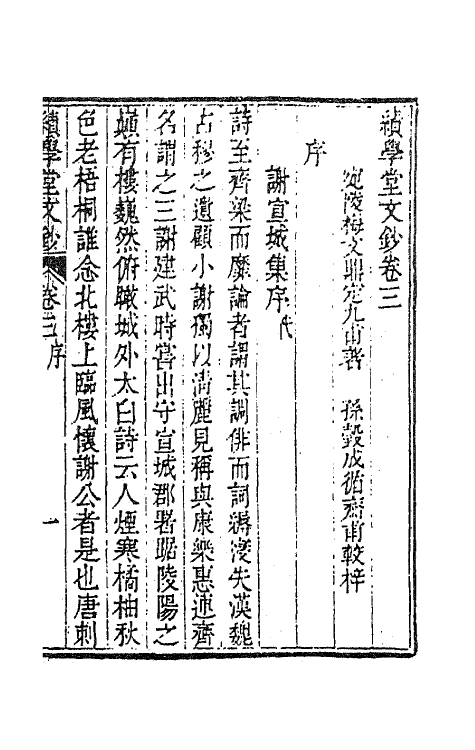 績學堂文鈔卷三
宛陵梅文鼎定九甫著　孫瑴成循齋甫較梓
序
謝宣城集序代
詩至齊梁而靡論者謂其調俳而詞縟浸失漢魏
古穆之遺顧小謝獨以清麗見稱與康樂惠連齊
名謂之三謝建武時嘗出守宣城郡署踞陵陽之
巔有樓巍然俯瞰城外太白詩云人煙寒橘柚秋
色老梧桐誰念北樓上臨風懷謝公者是也唐刺
績學堂文鈔　卷三　序　一